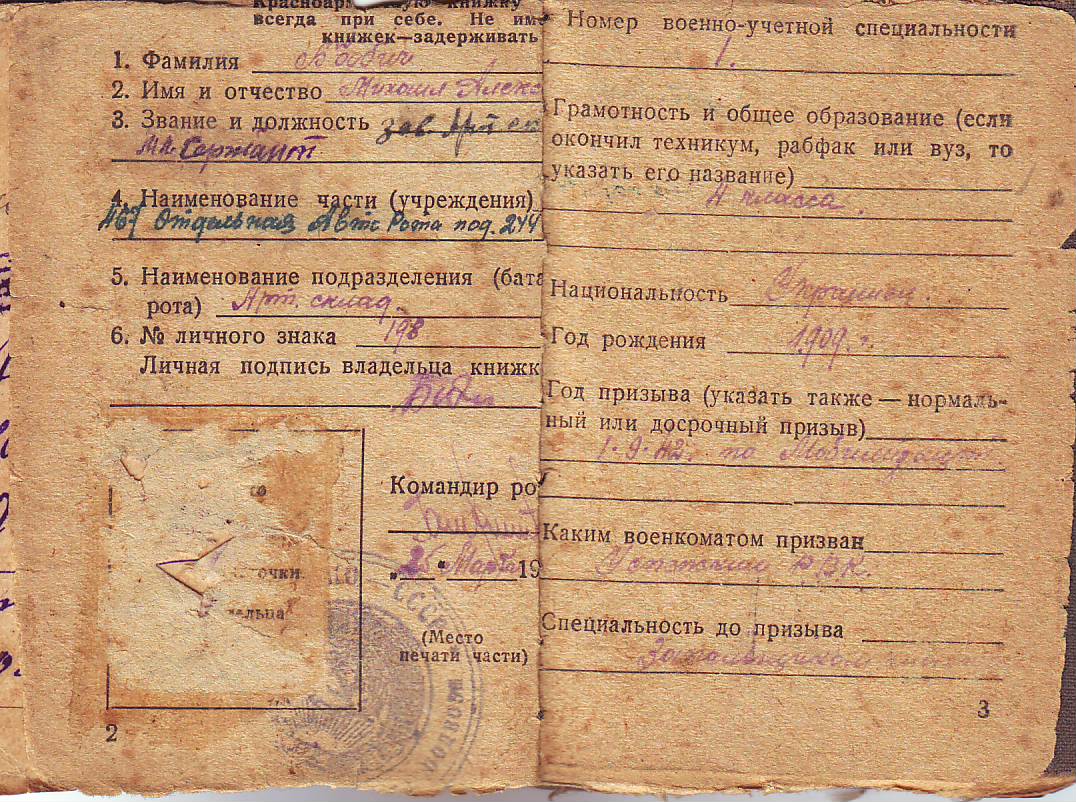 Красноарм книжку
всегда при себе. Не име
книжек—задерживать
1. Фамилия Бабич
2. Имя и отчество Михаил Алекс
3. Звание и должность зав Арт
Мл. Сержант
4. Наименование части (учреждения)
467 Отдельная Авт Рота под. 244
5. Наименование подразделения (бата
рота) Арт. склад
6. № личного знака 198
Личная подпись владельца книжк
Командир ро
„25“ Марта 19
(Место
печати части)
точки
дельца
СССР
2
Номер военно-учетной специальности
1.
Грамотность и общее образование (если
окончил техникум, рабфак или вуз, то
указать его название)
4 класса.
Национальность Украинец.
Год рождения 1909. г.
Год призыва (указать также — нормаль-
ный или досрочный призыв)
1. 9. 42. по Мобилизации
Каким военкоматом призван
РВК.
Специальность до призыва
3